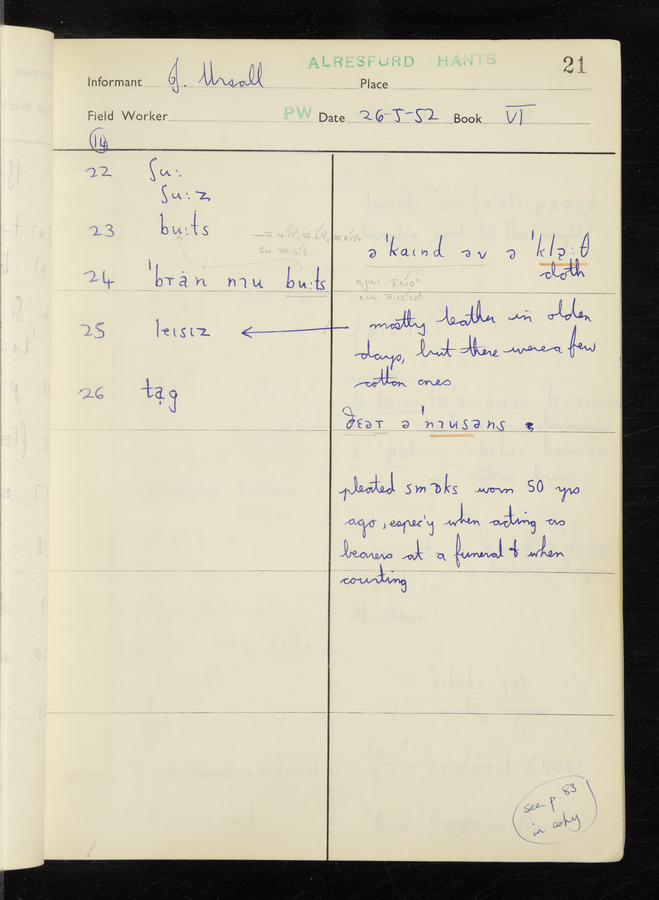 ALRESFORD HANTS.
21
Informant J. Ursall Place
Field Worker PW Date 26-5-52 Book VI
14
22 ʃu:
ʃu:z
23 bu:ts
24 ˈbɹän nɪu bu:ts
25 leɪsɪz
26 tạg
ə ˈkaɪnd əv ə ˈklạ:θ
cloth
mostly leather in olden
days, but there were a few
cotton ones
ðɛəɹ ə ˈnɪusəns
pleated smɒks worn 50 yrs
ago, espec'y when acting as
bearers at a funeral & when
courting
see p. 83
in copy